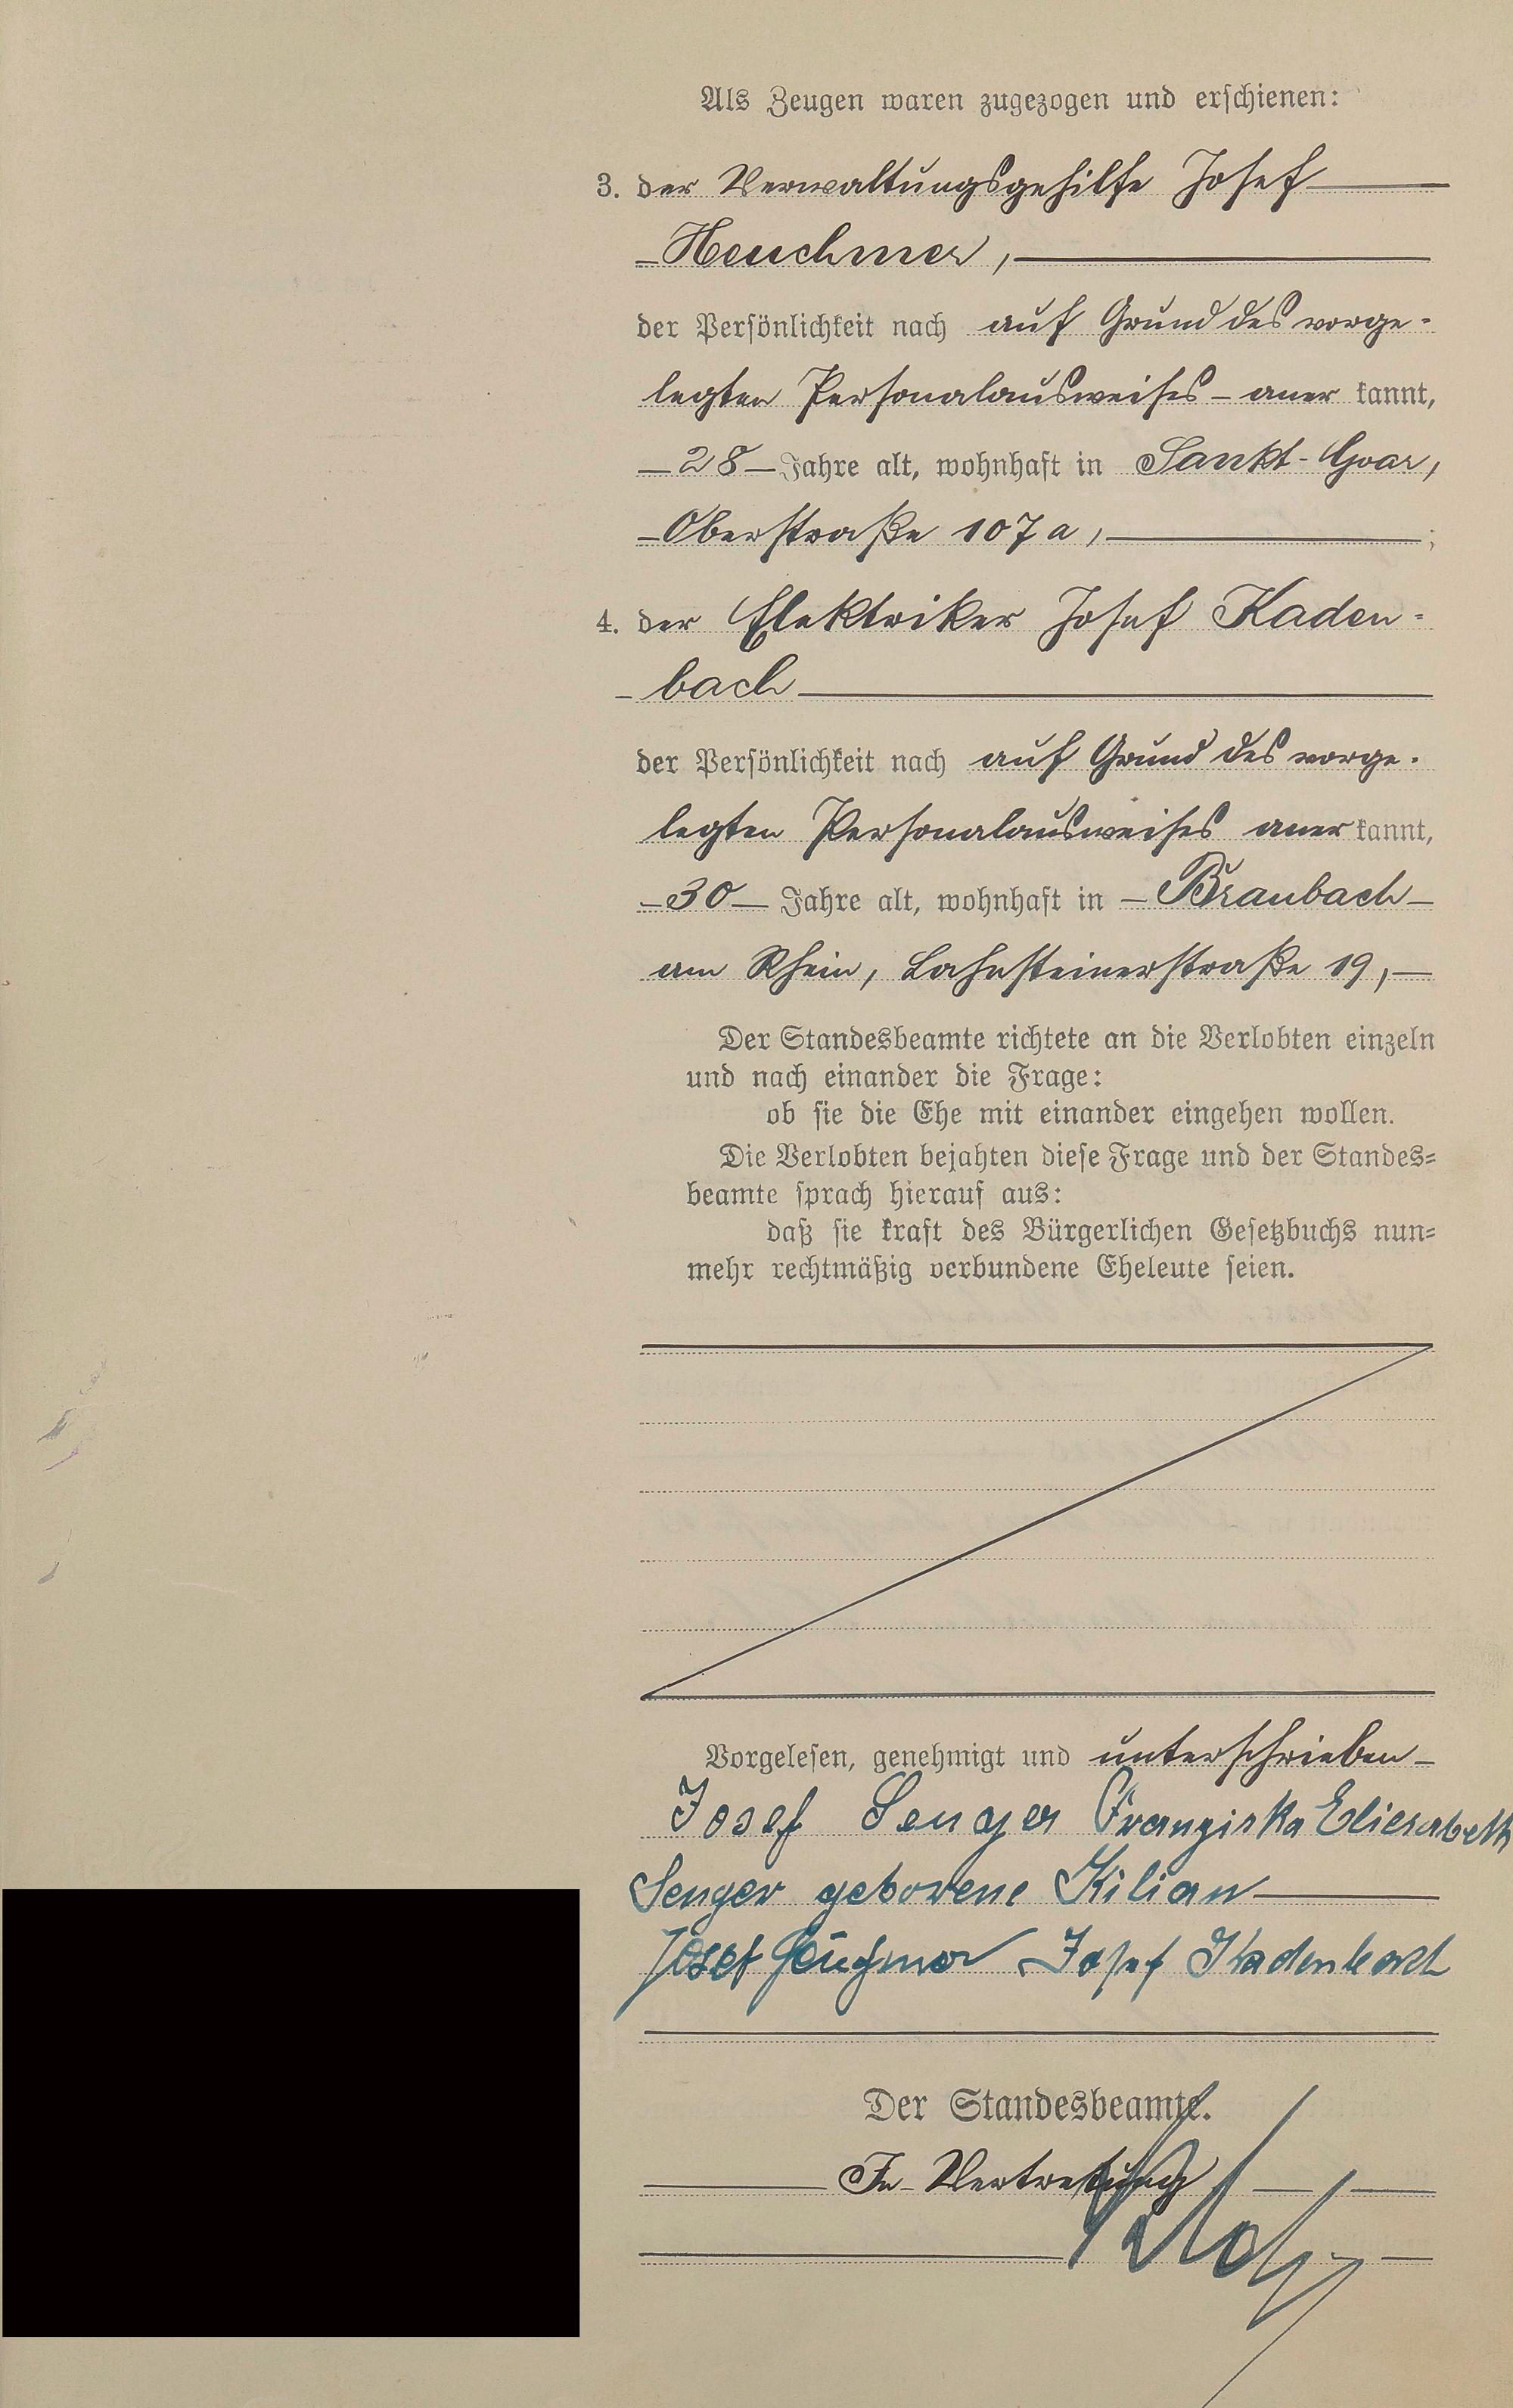 Als Zeugen waren zugezogen und erschienen:
3. der Verwaltungsgehilfe Josef
Heuchmer,
der Persönlichkeit nach auf Grund des vorge-
legten Personalausweises - aner kannt,
28 Jahre alt, wohnhaft in Sankt-Goar,
Oberstraße 107 a, ;
4. der Elektriker Josef Kaden-
bach
der Persönlichkeit nach auf Grund des vorge-
legten Personalausweises aner kannt,
30 Jahre alt, wohnhaft in Braubach
am Rhein, Lahnsteinerstraße 19,
Der Standesbeamte richtete an die Verlobten einzeln
und nach einander die Frage:
ob sie die Ehe mit einander eingehen wollen.
Die Verlobten bejahten diese Frage und der Standes-
beamte sprach hierauf aus:
daß sie kraft des Bürgerlichen Gesetzbuchs nun-
mehr rechtmäßig verbundene Eheleute seien.
Vorgelesen, genehmigt und unterschrieben
Josef Senger Franziska Eliesabeth
Senger geborene Kilian
Josef Heuchmer Josef Kadenbach
Der Standesbeamte.
In Vertretung